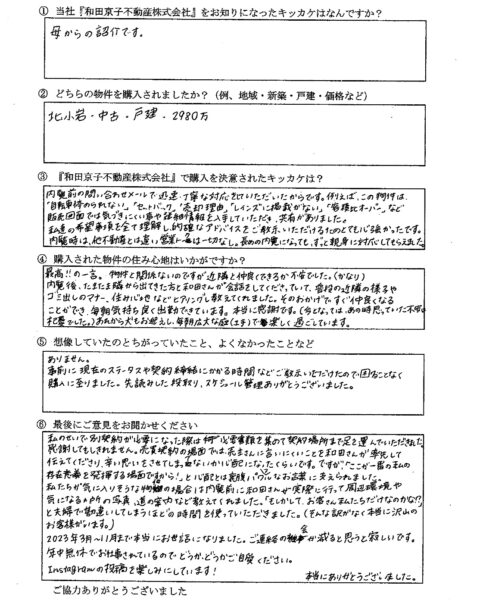 ① 当社『和田京子不動産株式会社』をお知りになったキッカケはなんですか?
母からの紹介です。
② どちらの物件を購入されましたか?(例、地域・新築・戸建・価格など)
北小岩・中古・戸建・2980万
③ 『和田京子不動産株式会社』で購入を決意されたキッカケは?
内覧前の問い合わせメールで迅速・丁寧な対応をしていただいたからです。例えば、この物件は、
"自転車停められない"、"セットバック"、"売却理由"、"レインズに掲載がない"、"容積比オーバー"など
販売図面では気づきにくい事や詳細情報を入手していただき、共有がありました。
私達の希望事項を全て理解し的確なアドバイスをご教示いただけるためとても心強かったです。
内覧時は、他不動産とは違い営業トークは一切なし。長めの内覧になっても、ずっと親身に対応してもらえました
④ 購入された物件の住み心地はいかがですか?
最高!!の一言。物件と関係ないのですが近隣と仲良くできるか不安でした。(かなり)
内覧後、たまたま隣から出てきた方と和田さんが会話をしてくださっていて、普段の近隣の様子や
ゴミ出しのマナー、住み心地などヒアリングし教えてくれました。そのおかげですぐ仲良くなる
ことができ、毎朝気持ち良く出勤できています。本当に感謝です。(今となっては、あの時思っていた不安は
⑤ 想像していたのとちがっていたこと、よくなかったことなど
ありません。
事前に現在のステータスや契約締結にかかる時間などご教示いただけたので困ることなく
購入に至りました。先読みした段取り、スケジュール管理ありがとうございました。
⑥ 最後にご意見をお聞かせください
私のせいで別契約が必要になった際は何が必要書類を集めて契約場所まで足を運んでいただきました
感謝してもしきれません。売買契約の場面では売主さんに言いにくいことを和田さんが率先して
伝えてくださり、辛い思いをさせてしまいないか心配になったくらいです。ですが"ここが一番の私の
存在意義を発揮する場面ですから!"と心配とは裏腹パワフルなお言葉に支えられました。
私たちが気に入りそうな物件の場合は内覧前に和田さんが実際に行って周辺環境や
気になる箇所の写真、道の室内など教えてくれました。"もしかして、お客さん私たちだけなのかな!?"
と夫婦で勘違いしてしまうほどの時間を使っていただきました。(そんな訳がなく本当に沢山の
お客様がいます。)
2023年3月〜11月まで本当にお世話になりました。ご連絡の機会が減ると思うと寂しいです。
年中無休でお仕事されているのでどうか、どうかご自愛ください。
Instagramの投稿を楽しみにしています!
本当にありがとうございました。
ご協力ありがとうございました